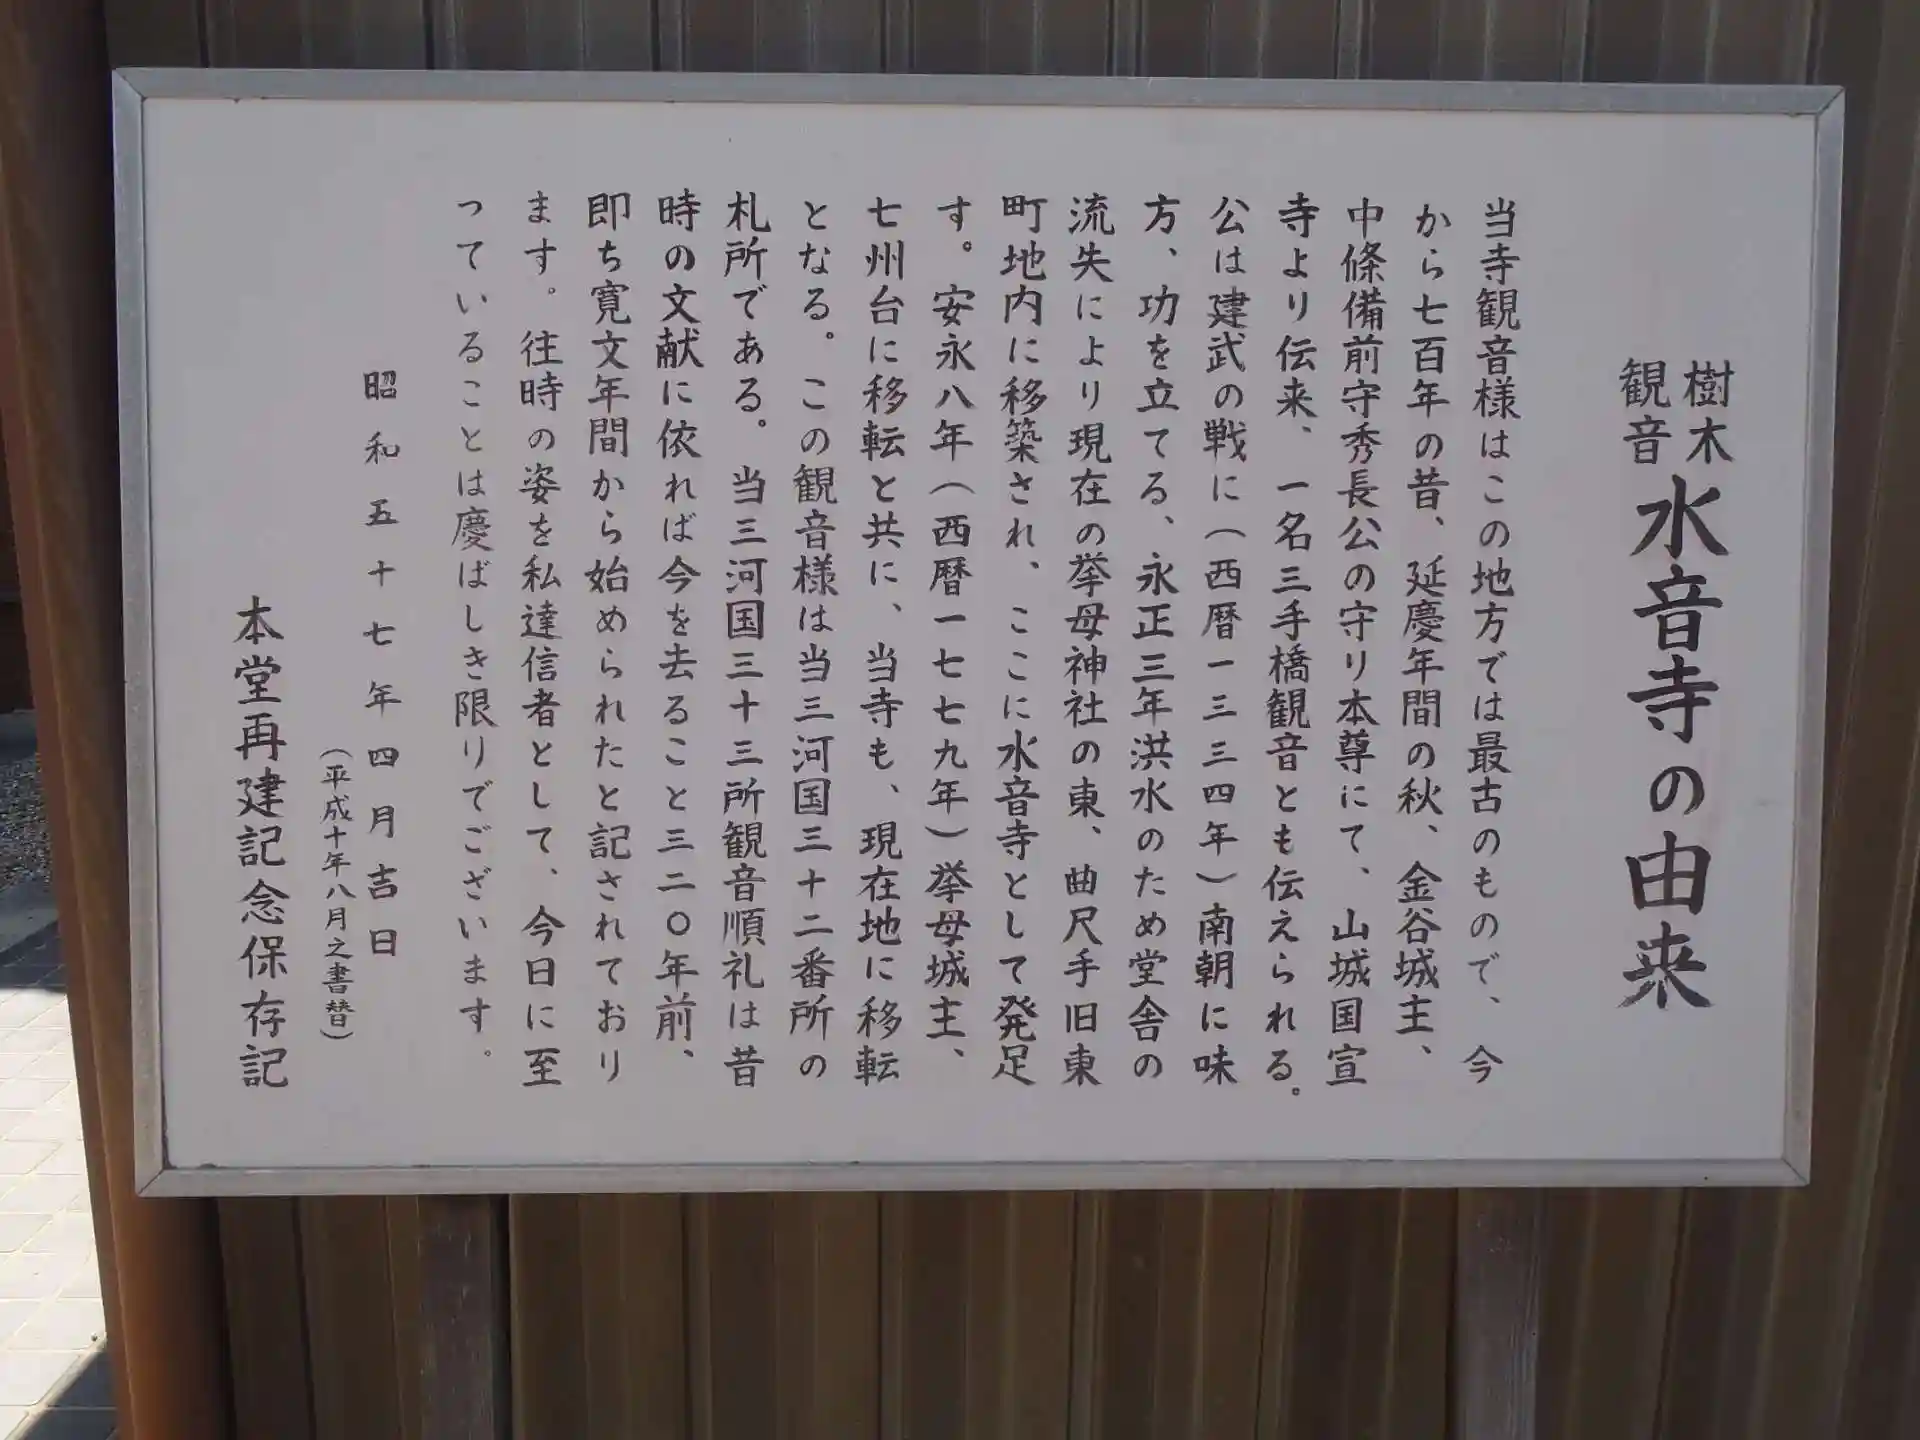 樹木
観音
水音寺の由来
当寺観音様はこの地方では最古のもので、今
から七百年の昔、延慶年間の秋、金谷城主、
中條備前守秀長公の守り本尊にて、山城国宣
寺より伝来、一名三手橋観音とも伝えられる。
公は建武の戦に(西暦一三三四年)南朝に味
方、功を立てる、永正三年洪水のため堂舎の
流失により現在の挙母神社の東、曲尺手旧東
町地内に移築され、ここに水音寺として発足
す。安永八年(西暦一七七九年)挙母城主、
七州台に移転と共に、当寺も、現在地に移転
となる。この観音様は当三河国三十二番所の
札所である。当三河国三十三所観音順礼は昔
時の文献に依れば今を去ること三二〇年前、
即ち寛文年間から始められたと記されており
ます。往時の姿を私達信者として、今日に至
っていることは慶ばしき限りでございます。
昭和五十七年四月吉日
(平成十年八月之書替)
本堂再建記念保存記